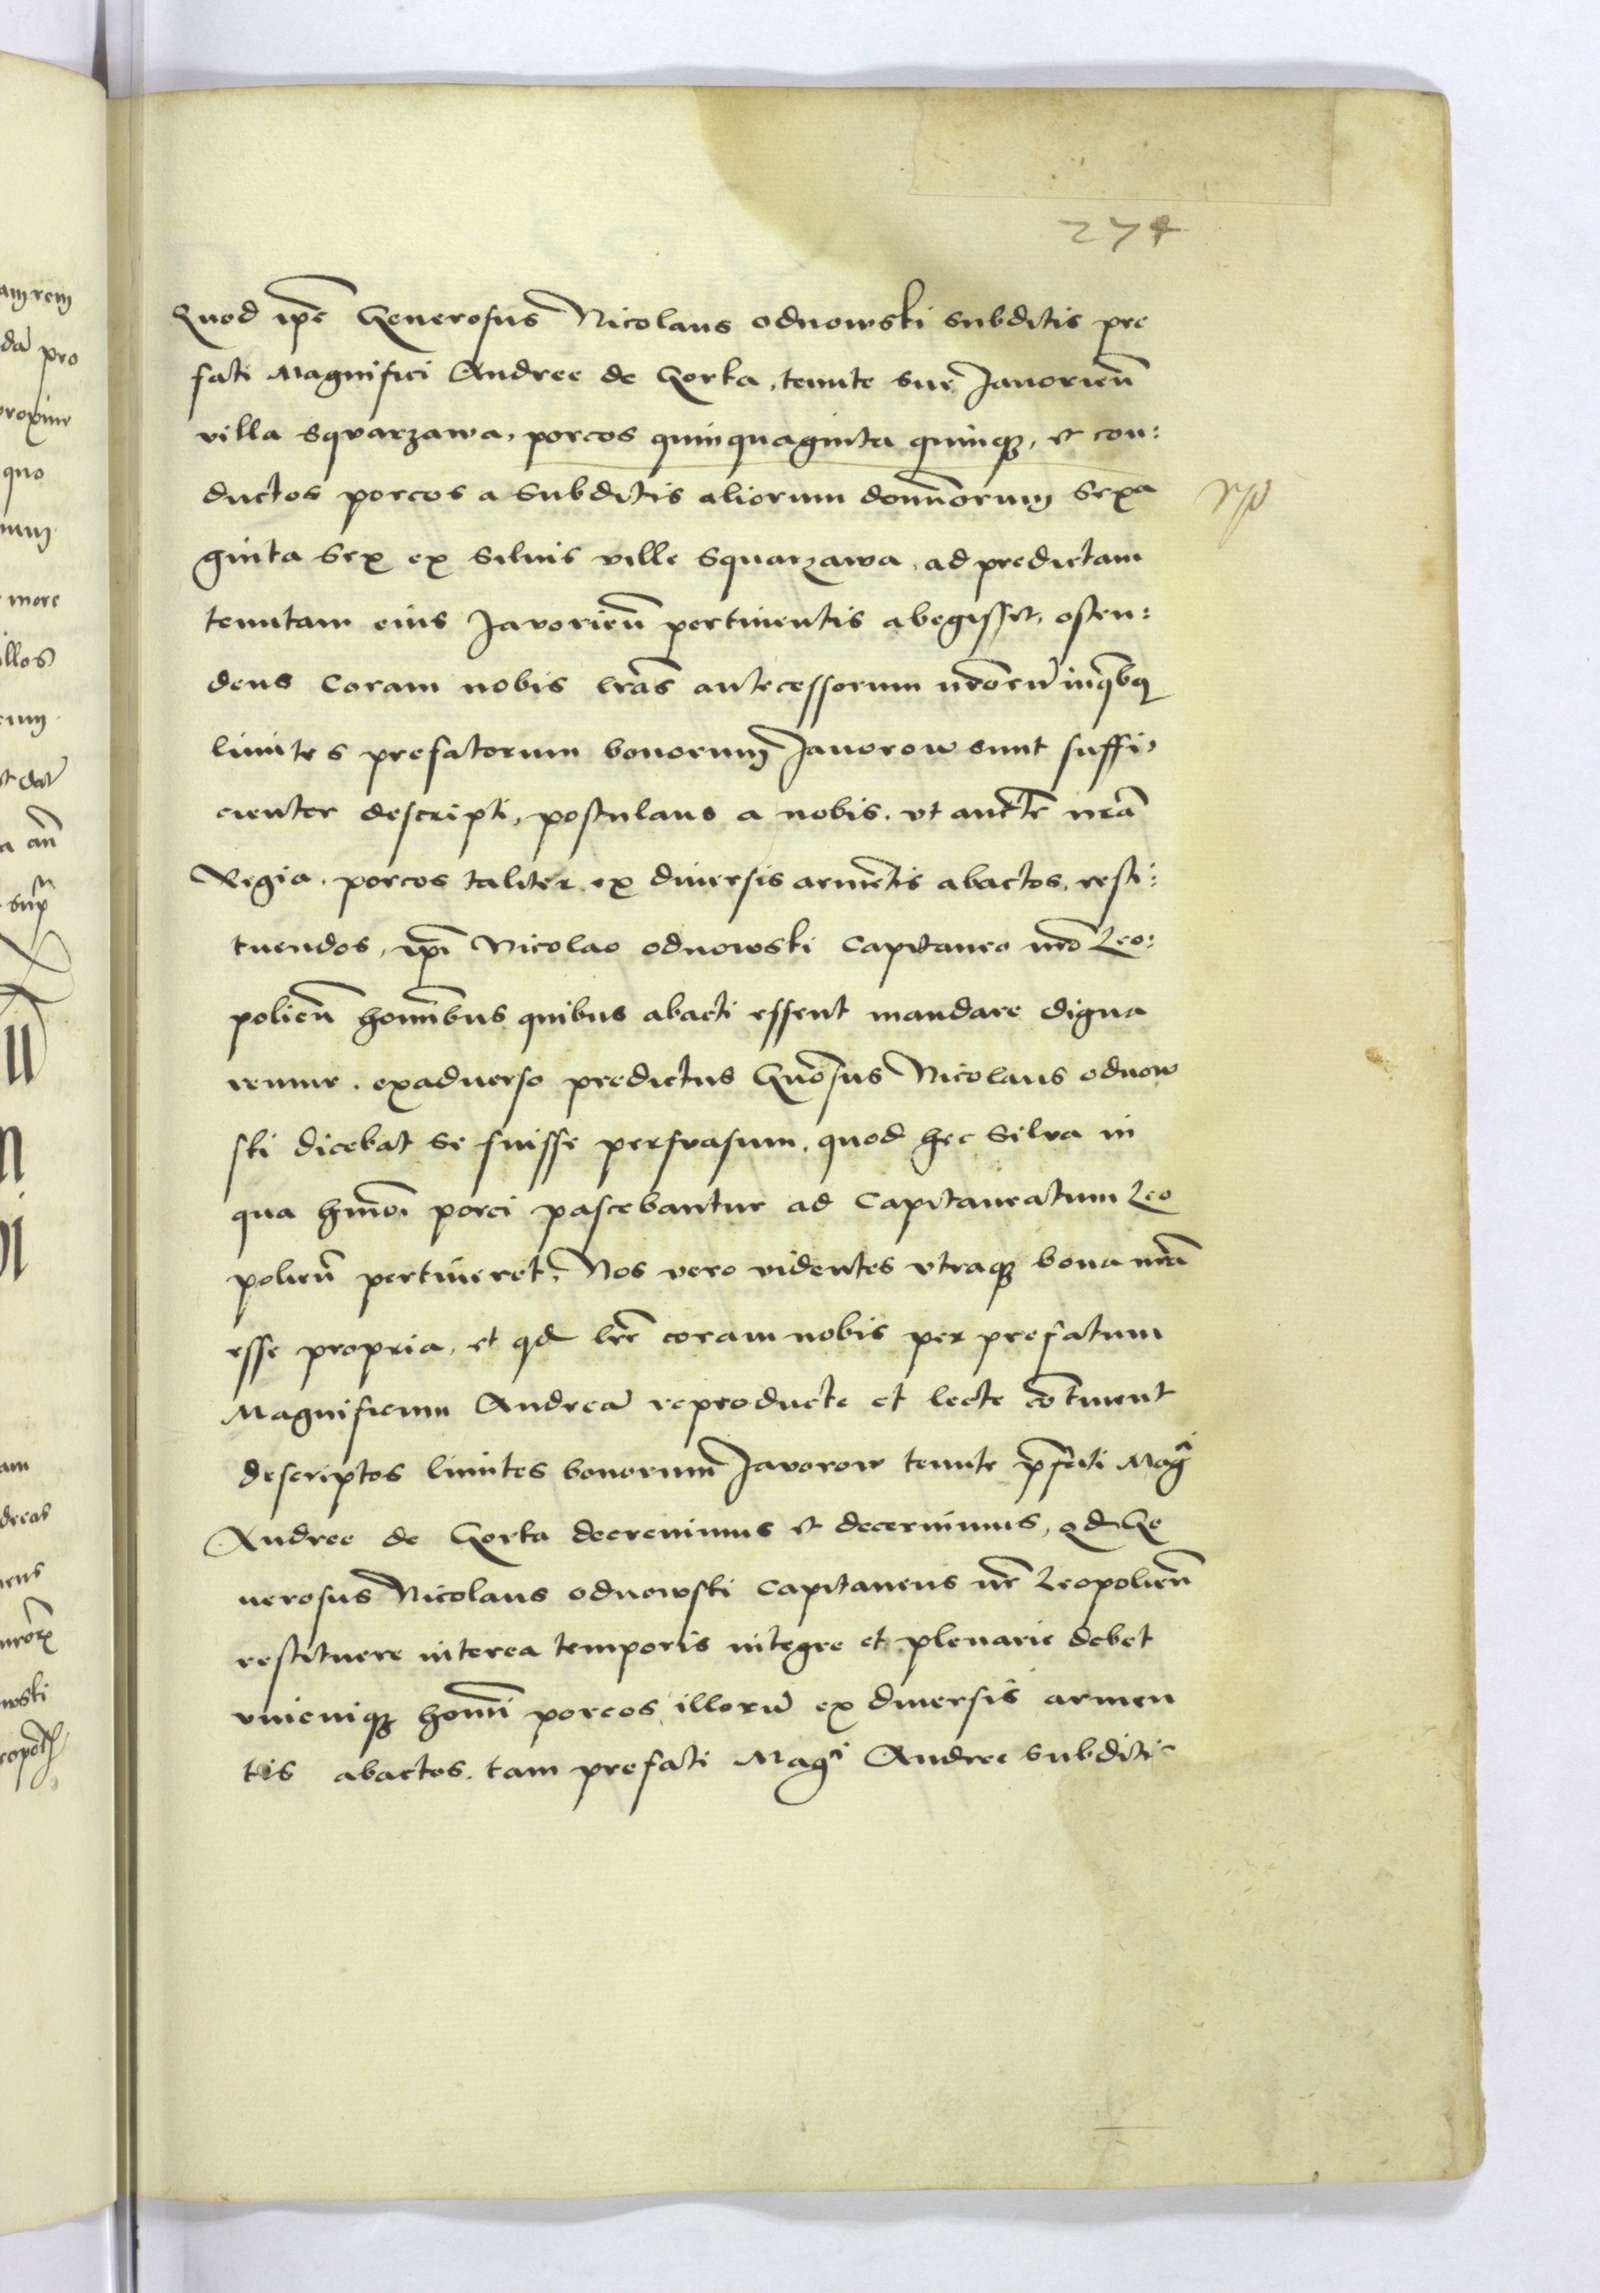 274
Quod ipe Generosus Nicolaus odnowski subditis pre
fati Magnifici Andree de Gorka, tenute sue Javorien
villa Sqvarzawa, porcos quinquaginta quinq, et con:
ductos porcos a subditis aliorum dominorum sexa
ginta sex ex siluis ville Squarzawa, ad predictam
tenutam eius Javorien pertinentis abegisset, osten:
dens coram nobis lras antecessorum nrorum in qbq
limites prefatorum bonorum Javorow sunt suffi:
cienter descripti, postulans a nobis, vt aucte nra
Regia, porcos taliter ex diuersis armetis abactos, resti:
tuendos, ipi Nicolao odnowski Capitaneo nro Leo:
polien hominibus quibus abacti essent mandare digna
remur. exaduerso predictus Gnosus Nicolaus odnow
ski dicebat se fuisse persvasum, quod hec silva in
qua hmoi porci pascebantur ad Capitaneatum Leo
polien pertineret, Nos vero videntes vtraq bona nra
esse propria, et qd lre coram nobis per prefatum
Magnificum Andrea reproducte et lecte cotinent
descriptos limites bonorum Javorow tenute pfati Mag^ci
Andree de Gorka decreuimus et decernimus, qd Ge
nerosus Nicolaus odnowski Capitaneus nr Leopolien
restituere interea temporis integre et plenarie debet
vnicuiq homi porcos illoru ex diuersis armen
tis abactos, tam prefati Mag^ci Andree subditis